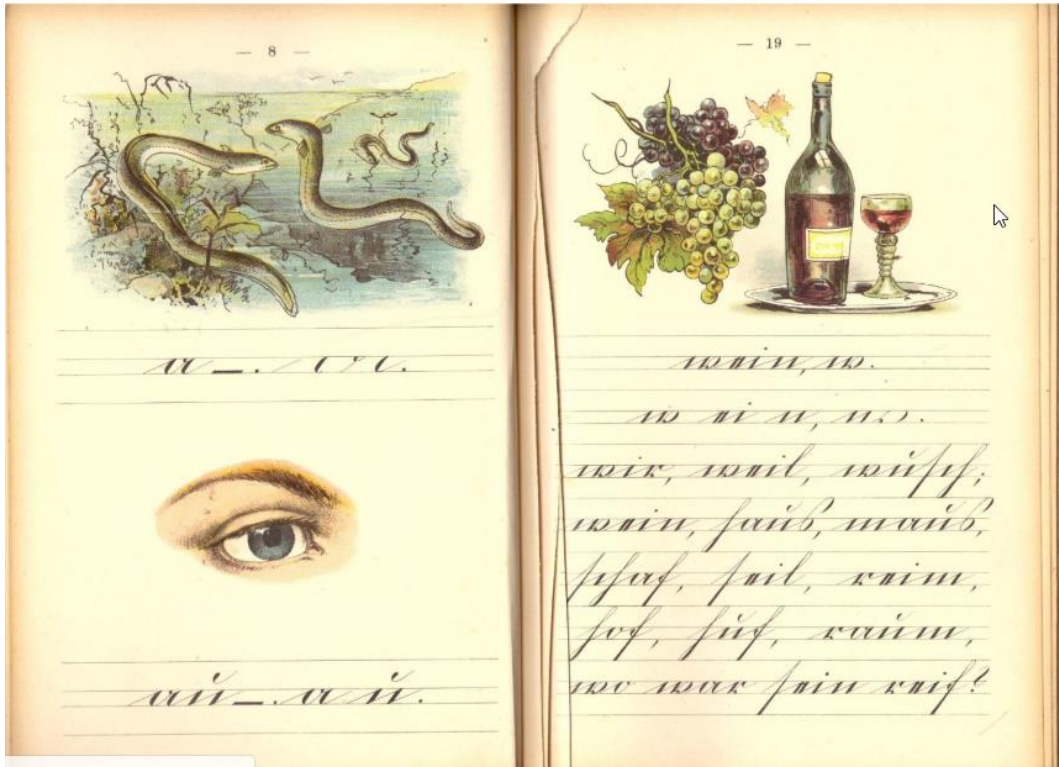 — 8 —
a —.
au —. a u.
— 19 —
wein, w.
w ei n,
wir, weil, wusch;
wein, haus, maus,
schaf, seil, reim,
hof, huf, raum,
wo war sein reif?